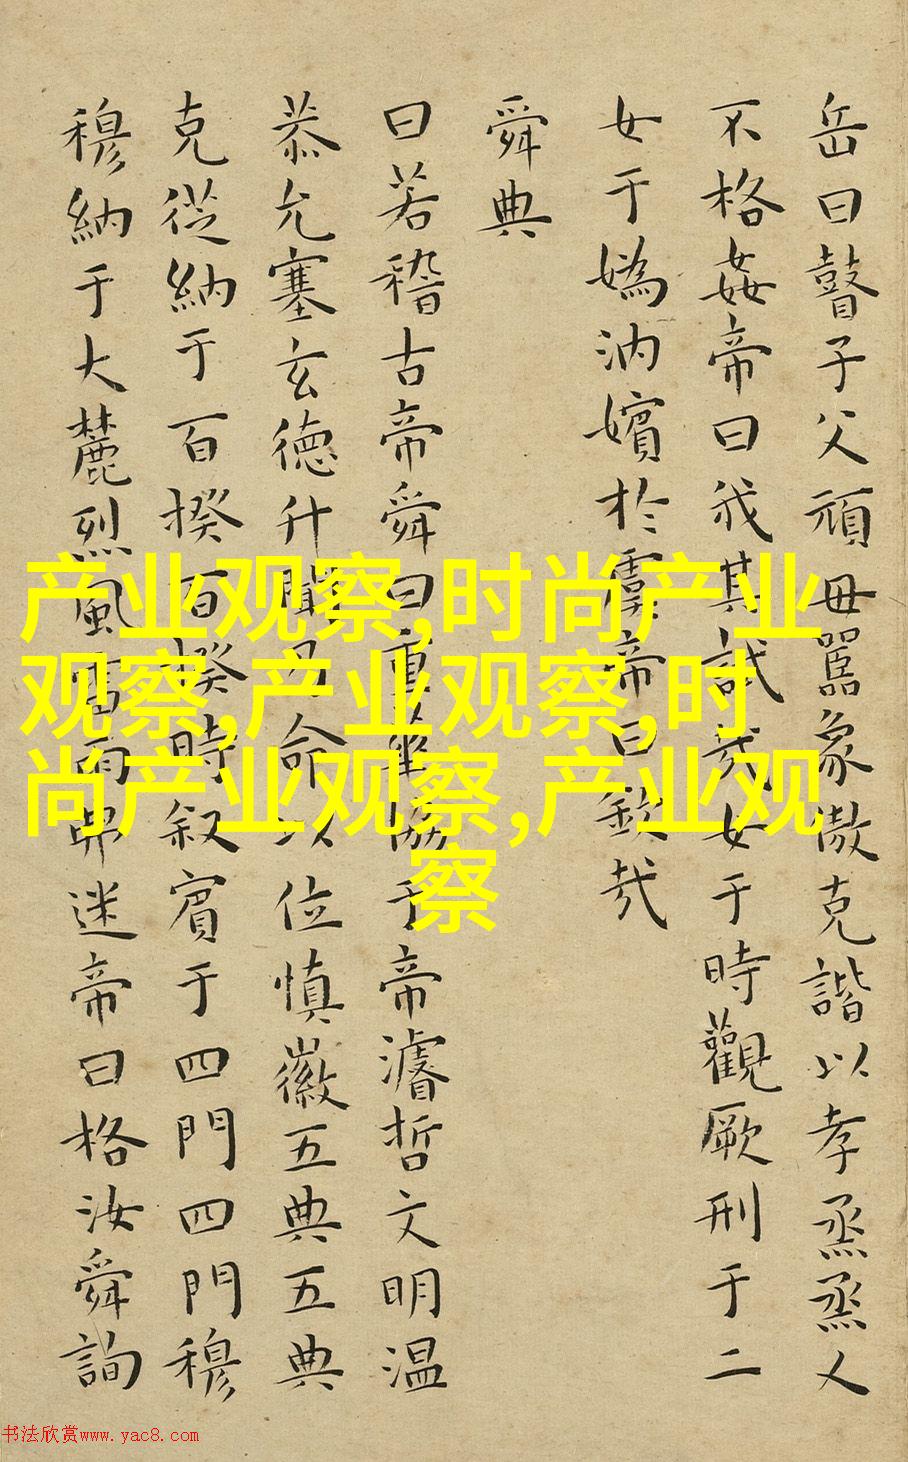 岳曰瞽子父頑毋嚚象傲克諧以孝烝烝乂
不格姦帝曰我其試哉女于時觀厥刑于二
女于媯汭嬪於虞帝曰欽哉
舜典
曰若稽古帝舜曰重華協于帝濬哲文明温
恭允塞玄徳升聞乃命以位慎徽五典五典
克從納于百揆百揆時叙賓于四門四門穆
穆納于大麓烈風雷雨弗迷帝曰格汝舜詢
产业观察,时尚产业
观察,产业观察,时
尚产业观察,产业观
察
书法欣赏www.yac8.com